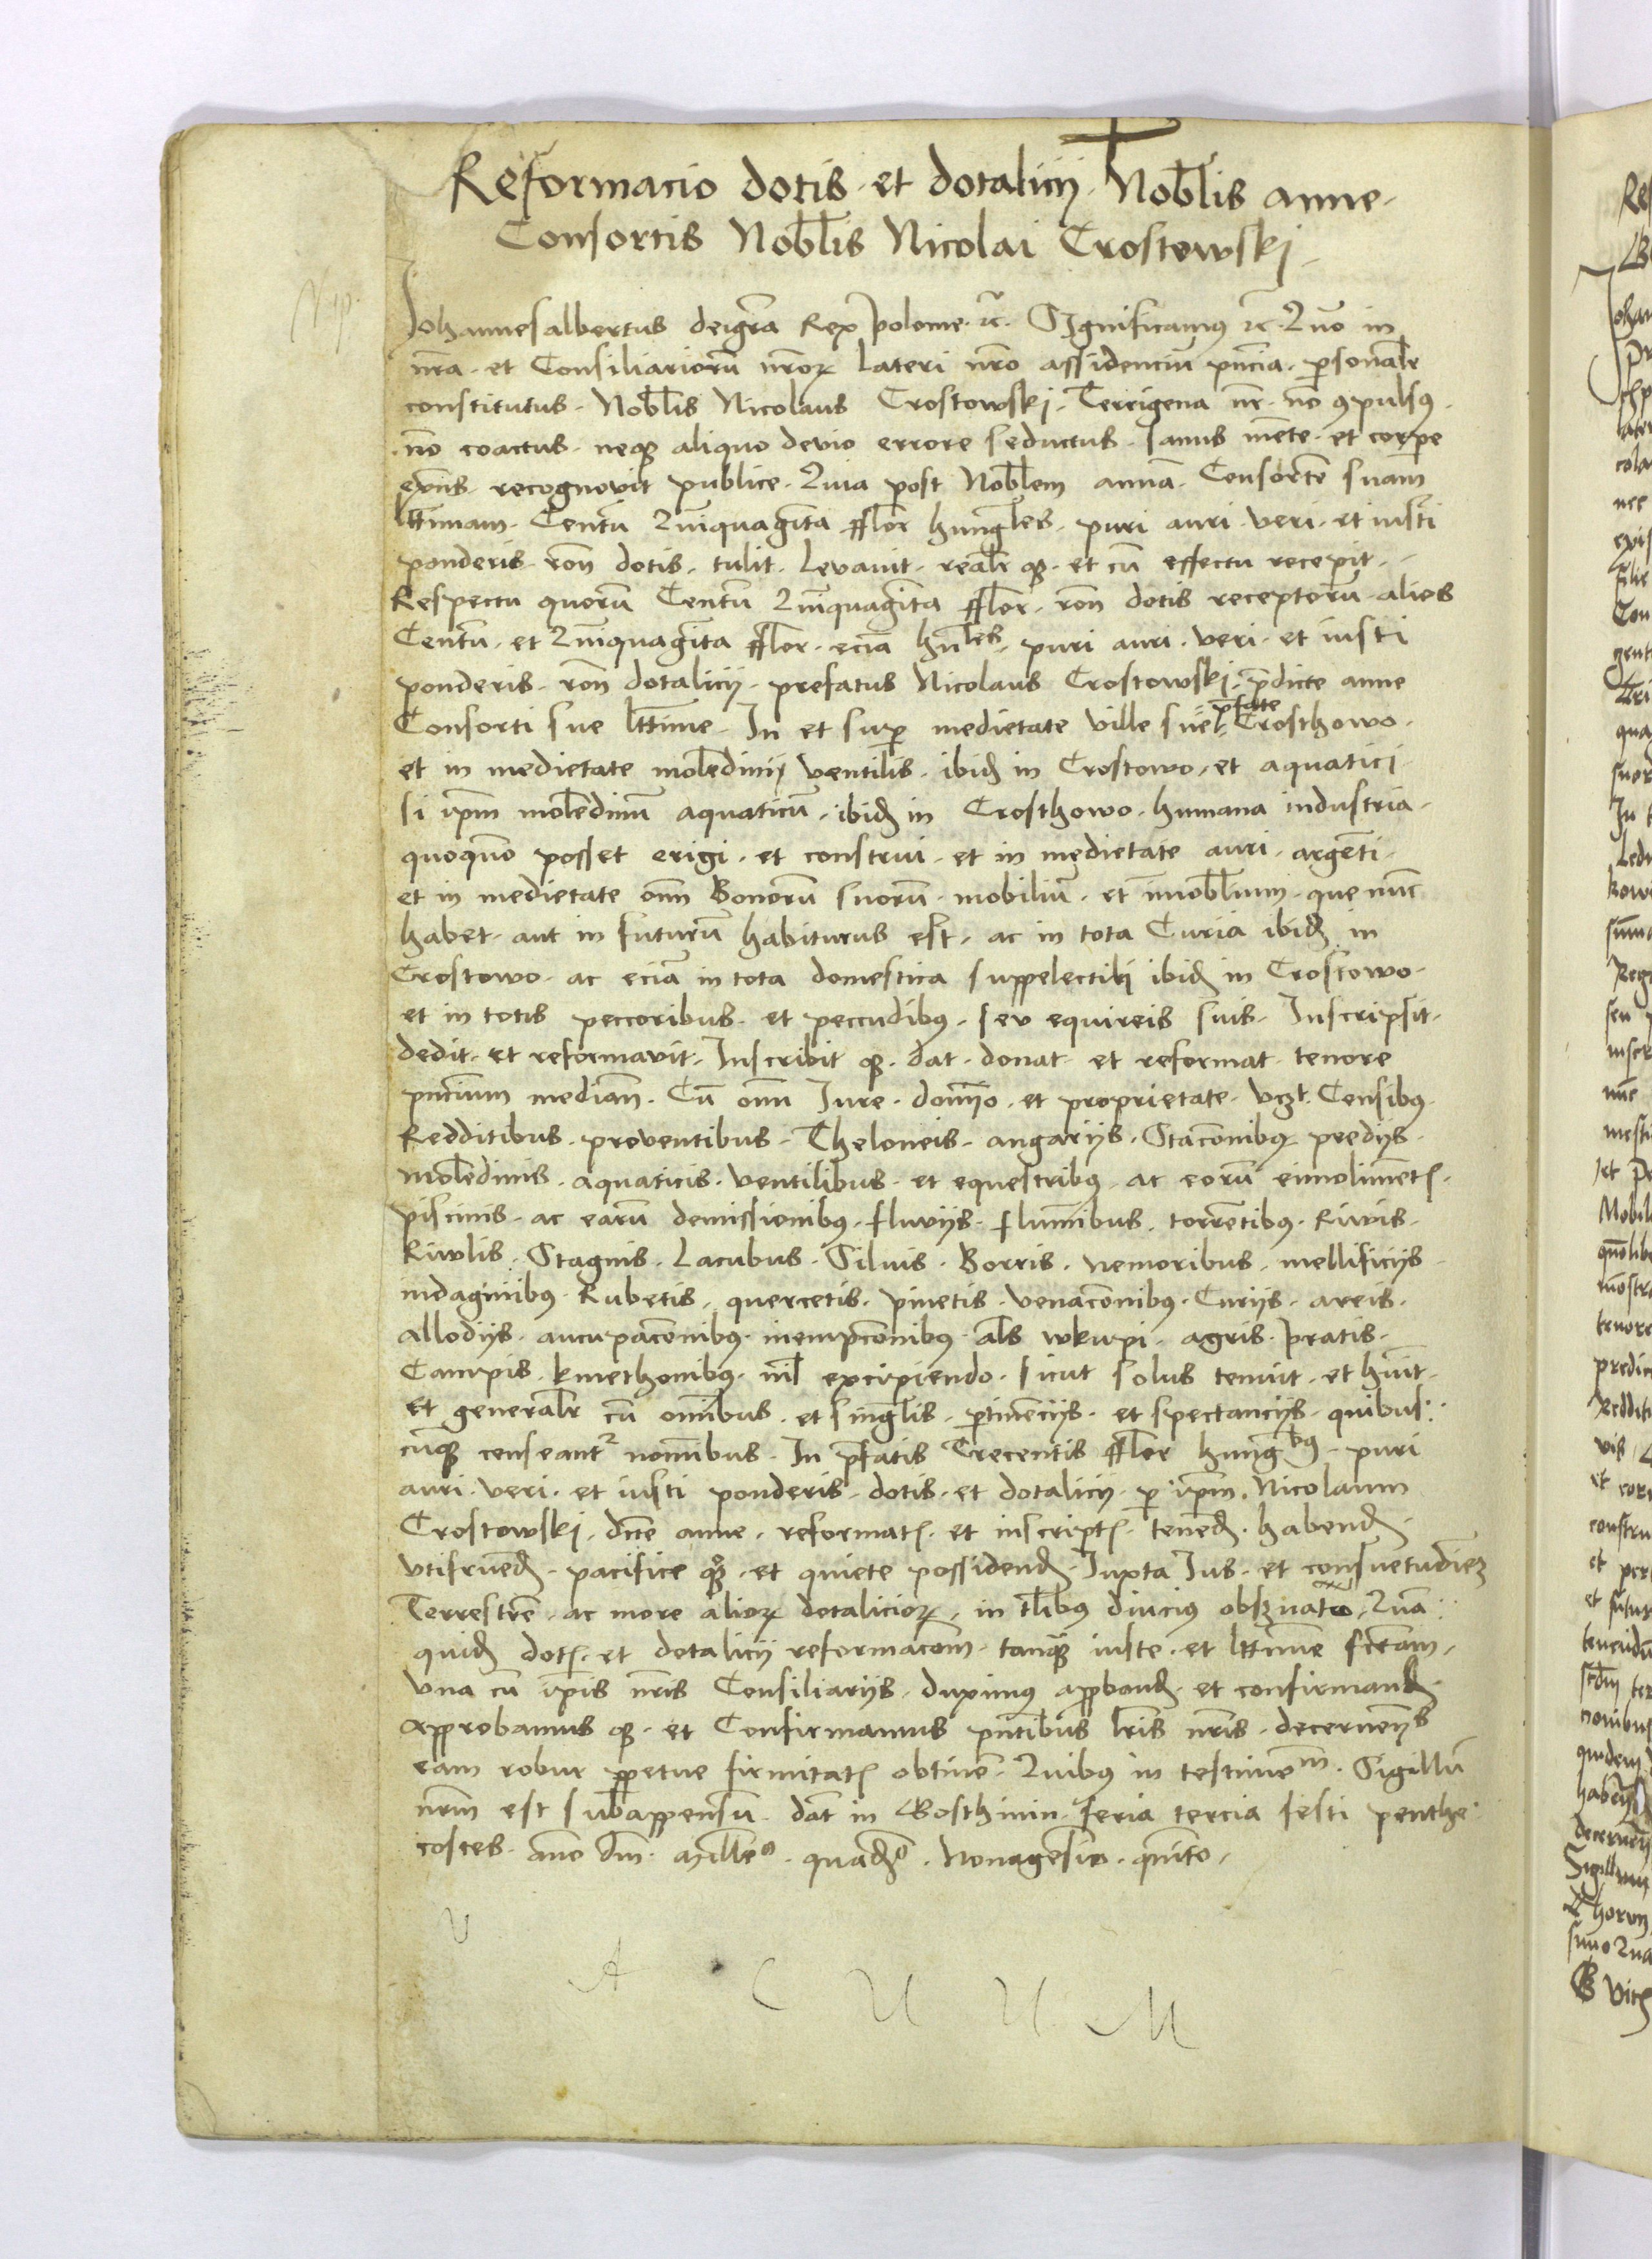 Reformacio dotis et dotalicij Nob̅lis anne
Consortis Nob̅lis Nicolai Crostowskj
Johannesalbertus deigr̅a Rex polonie ꝛc̅. Significamus ꝛc̅ Quo̅ in
nr̅a et Consiliarioru̅ nr̅oꝝ lateri nr̅o assidenciu̅ pn̅cia p̱sonal̅r
constitutus Nob̅lis Nicolaus Crostowskj Terrigena nr̅ no̅ ꝯpulsꝰ
no̅ coactus neqꝫ aliquo devio errore seductus sanus me̅te et corꝑe
exn̅s recognovit publice Quia post Nob̅lem anna̅ Consorte̅ suam
ltt̅imam Centu̅ Qui̅quagi̅ta fflor hungl̅es puri auri veri et iusti
ponderis ro̅n dotis tulit Levauit real̅r qꝫ et cu̅ effectu recepit
Respectu quoru̅ Centu̅ Qui̅quagi̅ta fflor ro̅n dotis receptoru̅ alios
Centu̅ et Qui̅quagi̅ta fflor ecia̅ hu̅les puri auri veri et iusti
ponderis ro̅n dotalicij prefatus Nicolaus Crostowskj p̅dicte anne
Consorti sue ltt̅ime In et suꝑ medietate ville sue p̅fate Crosthowo
et in medietate mole̅dinij ventilis ibidꝫ in Crostowo et aquatici
si ip̅m mole̅dinu̅ aquaticu̅ ibidꝫ in Crosthowo humana industria
quoquo̅ posset erigi et construi et in medietate auri arge̅ti
et in medietate om̅n Bonoru̅ suoru̅ mobiliu̅ et i̅mob̅lium que nu̅c
habet aut in futuru̅ habiturus est ac in tota Curia ibidꝫ in
Crostowo ac ecia̅ in tota domestica suppelectili ibidꝫ in Crostowo
et in totis peccoribus et peccudibꝰ seu equireis suis Inscripsit
dedit et reformavit Inscribit qꝫ dat donat et reformat tenore
pn̅cium median̅ Cu̅ om̅i Jure domi̅o et proprietate vꝫt Censibꝰ
Redditibus proventibus Theloneis angarijs Stac̅onibꝰ predijs
mole̅dinis aquaticis ventilibus et equestribꝰ ac eoru̅ eimolime̅tꝭ
piscinis ac earu̅ demissionibꝰ fluvijs flumi̅bus torre̅tibꝰ Riuis
Riuulis Stagnis Lacubus Siluis Borris nemoribus mellificijs
indaginibꝰ Rubetis quercetis pinetis venac̅onibꝰ Curijs areis
allodijs aucupac̅onibꝰ inempc̅onibꝰ al̅s wkupi agris pratis
Campis kmethonibꝰ nil̅ excipiendo sicut solus tenuit et hu̅it
et general̅r cu̅ om̅ibus et sing̅lis p̱tine̅cijs et spectancijs quibus
cu̅qꝫ censeantꝛ nomi̅bus In p̅fatis Trecentis fflor hung̅bꝰ puri
auri veri et iusti ponderis dotis et dotalicij ꝑ ip̅m Nicolaum
Crostowskj dc̅te anne reformatꝭ et inscriptꝭ tene̅dꝫ habendꝫ
vtifrue̅dꝫ pacifice qꝫ et quiete possidendꝫ Juxta Jus et consuetudi̅eꝫ
Terrestre̅ ac more alioꝝ dotalicioꝝ in tl̅ibus diucius obẜuato Qua̅
quidꝫ dotꝭ et dotalicij reformac̅om tanqꝫ iuste et ltt̅ime fc̅tam
vna cu̅ ip̅is nr̅is Consiliarijs duximus apꝓbandꝫ et confirmandꝫ
approbamus qꝫ et Confirmamus pn̅tibus lr̅is nr̅is decerne̅tꝭ
eam robur ꝑpetue firmitatꝭ obtine̅ Quibꝰ in testimoe̅m Sigillu̅
nr̅m est subappensu̅ dat̅ in Gosthinin feria tercia festi penthe
costes an̅o dm̅ mill̅eo quadꝫo Nonagesi̅o qui̅to
V A C U U M